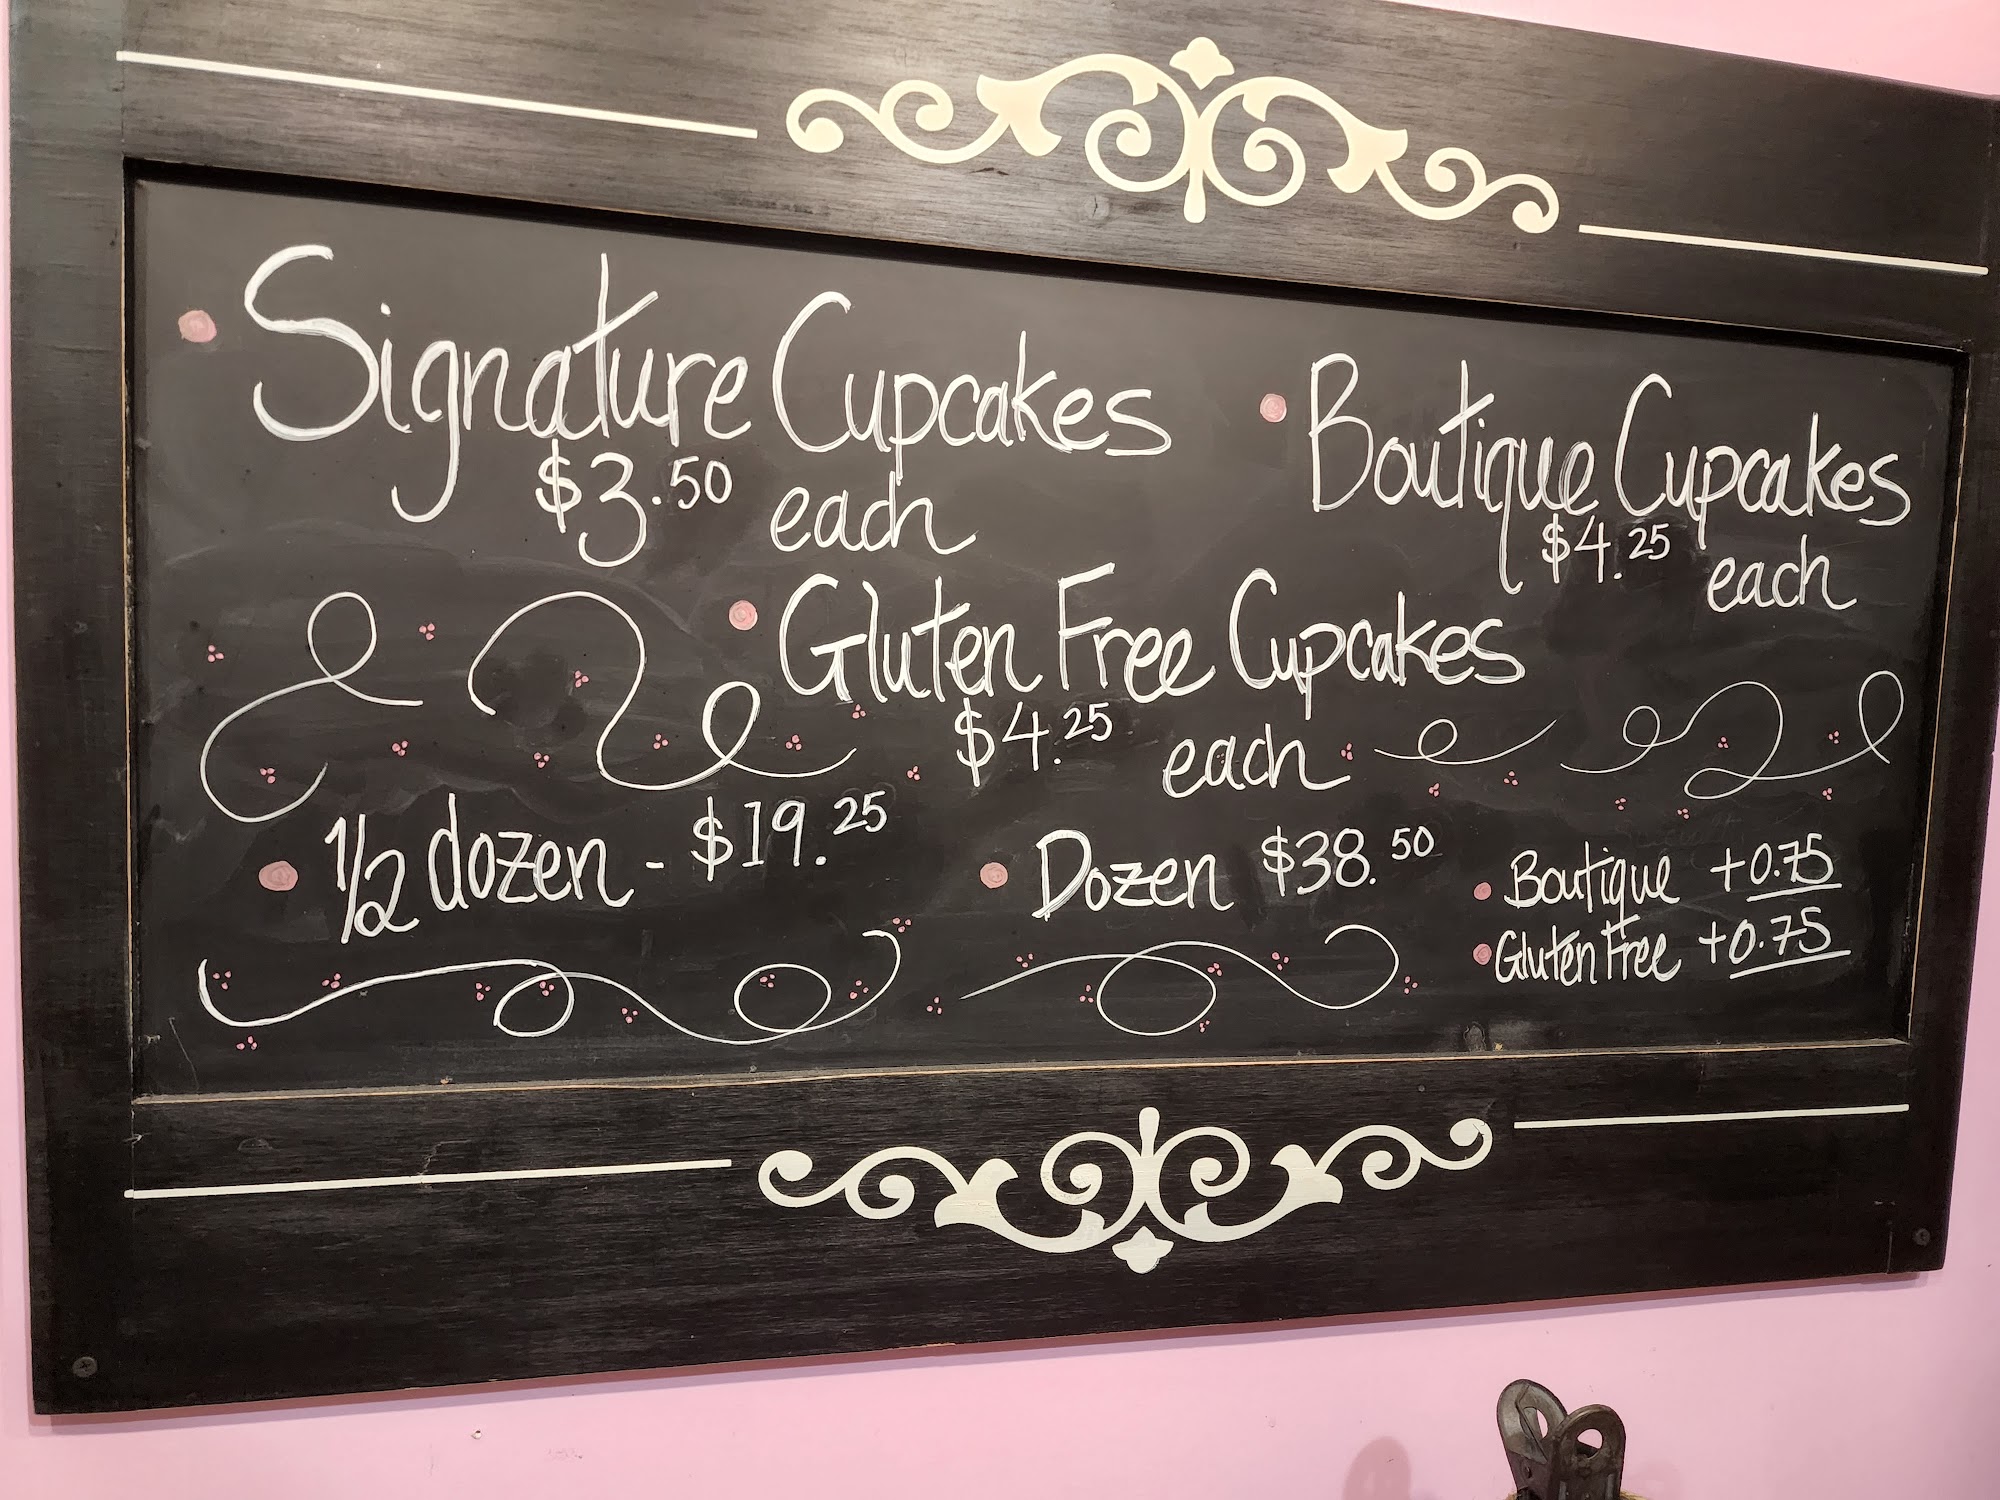 Signature Cupcakes
$3.50 each
Boutique Cupcakes
$4.25 each
Gluten Free Cupcakes
$4.25 each
1/2 dozen - $19.25
Dozen $38.50
Boutique +0.75
Gluten Free +0.75